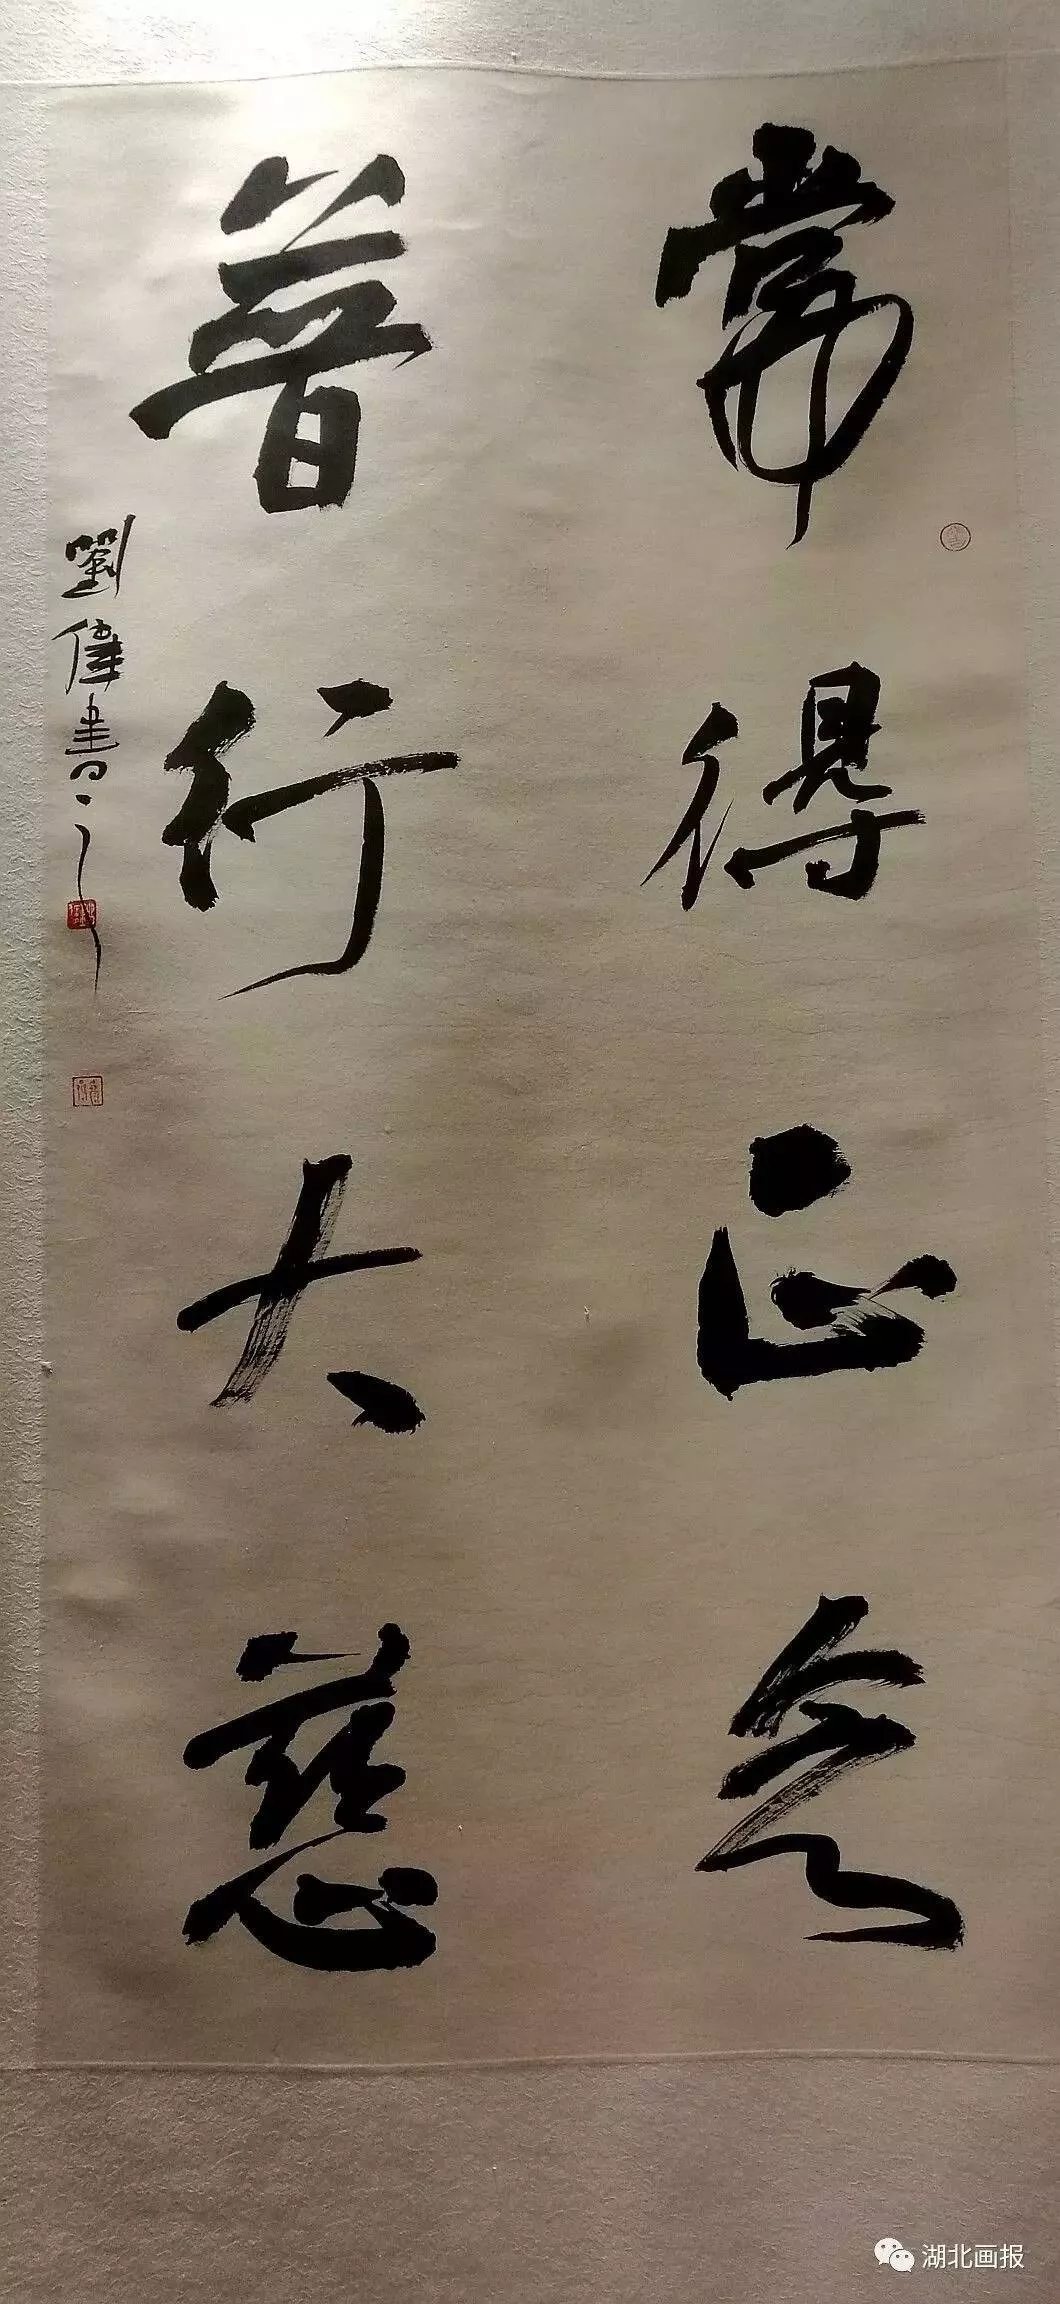 常得正念
普行大慈
劉偉書
湖北画报